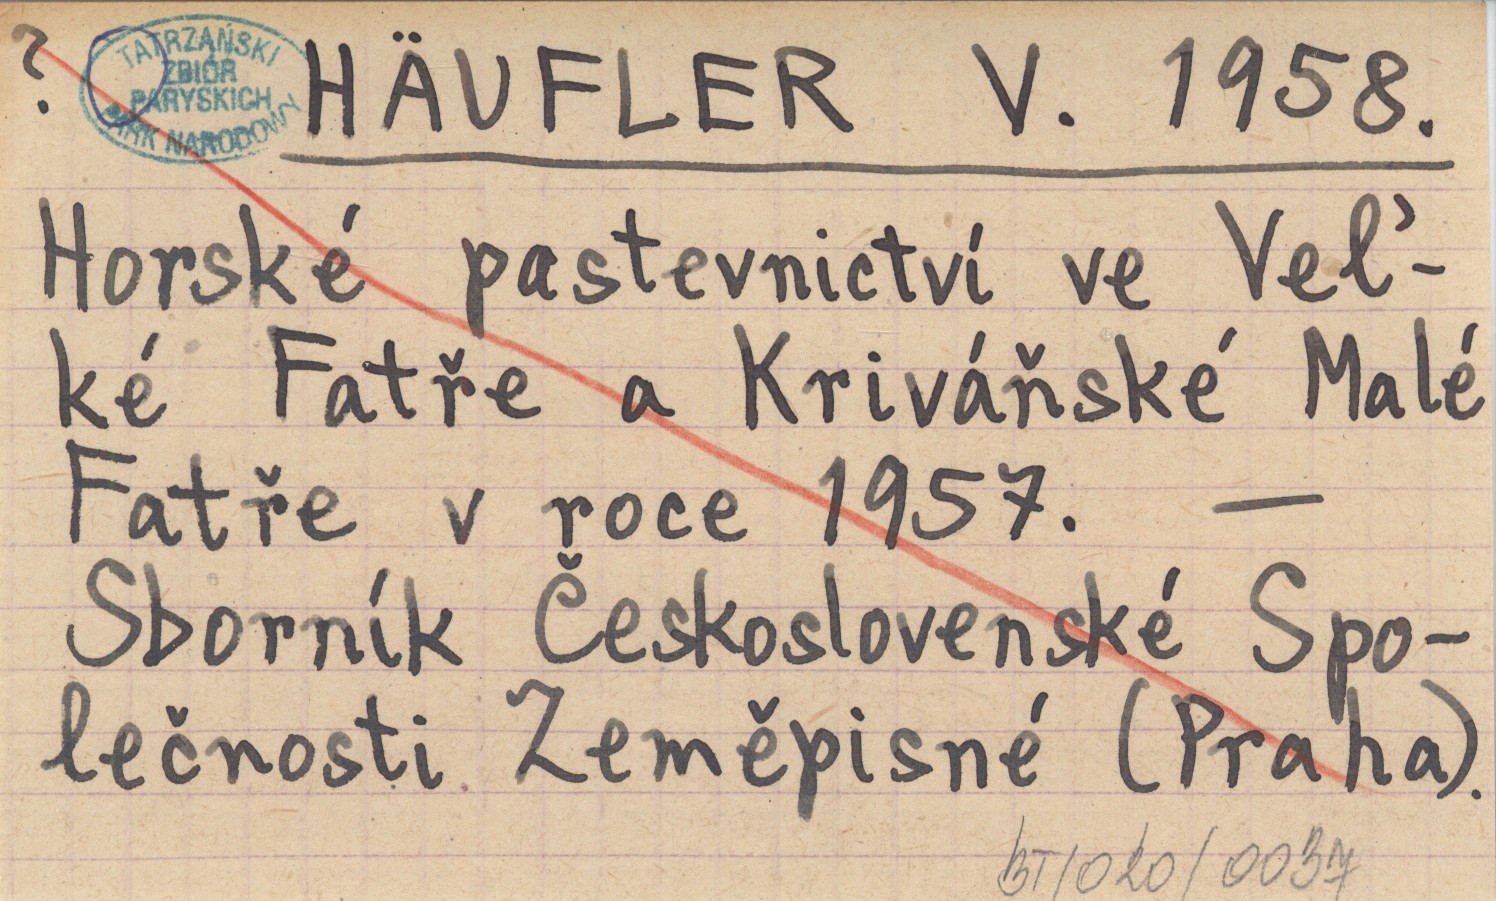 ?
TATRZAŃSKI
ZBIÓR
PARYSKICH
PARK NARODOWY
HÄUFLER V. 1958.
Horské pastevnictví ve Veľ-
ké Fatře a Kriváňské Malé
Fatře v roce 1957. —
Sborník Československé Spo-
lečnosti Zeměpisné (Praha).
BT/020/0037